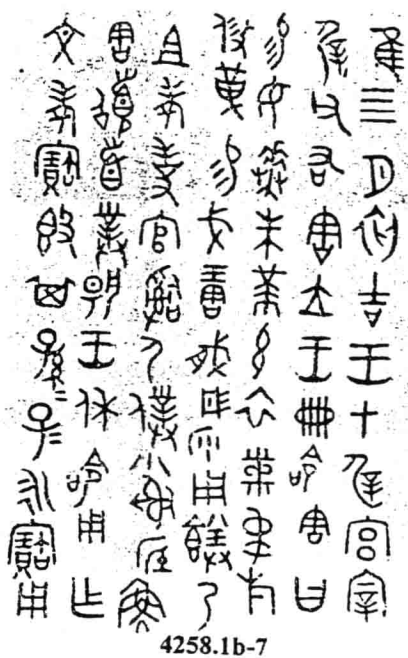 隹四月初吉王才屖宮宰
屖父右害立王冊命害曰
易女朱黃玄衣黹屯㫃
攸革易戈琱彤沙用乃
且考事官𤔲尸僕小射底魚
害𩒨首對揚王休命用乍
文考寶簋其孫=子=永寶用
4258.1b-7